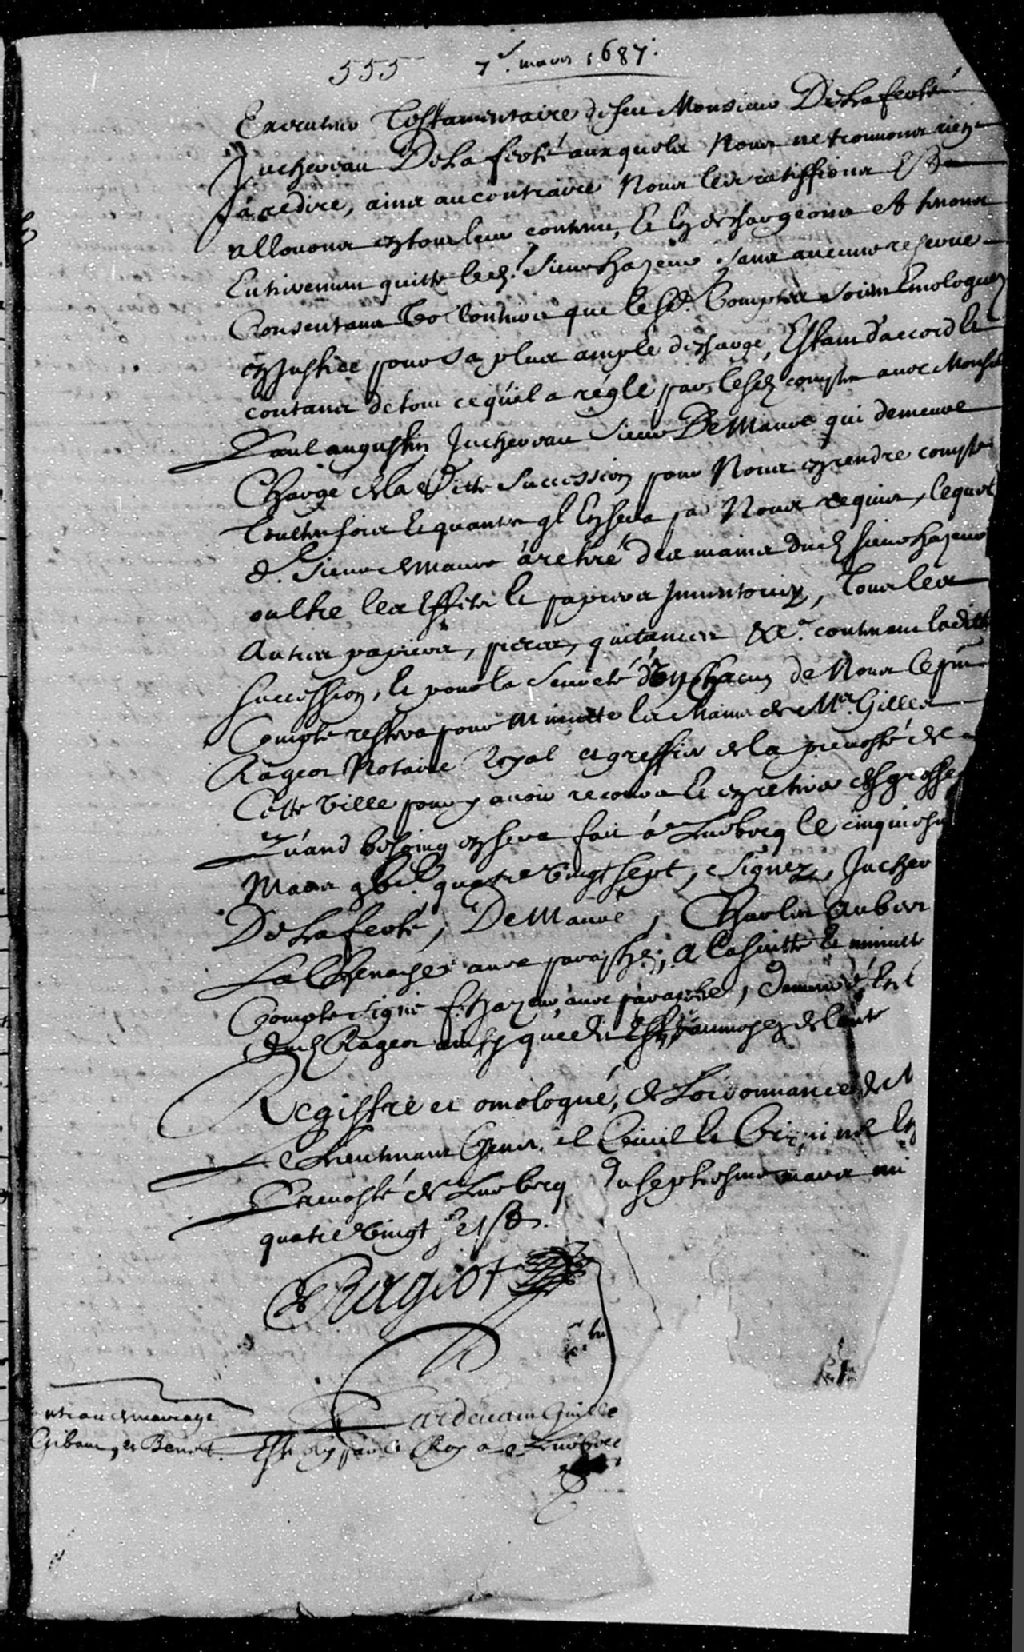 555 7e. mars 1687.
Executeur Testamentaire de feu Monsieur De La ferté
Juchereau De La ferté auxquels Nous ne trouvons rien
à redire, ains au contraire Nous les ratiffions &
allouons en tout leur contenu, Et en deschargeons et tenons
Entierement quitte led. Sieur hazeur sans aucune reserve
Consentans Et voulons que lesd. Comptes soient Emologuez
en Justice pour sa plus ample descharge, Estant d'accord Et
contans de tout ce qu'il a réglé par lesd. comptes avec Monsieur
Paul augustin Juchereau Sieur De Maure qui demeure
Chargé de la ditte Succession pour Nous en rendre compte
touttesfois Et quantes qu'il En sera par Nous requis, lequel
d. Sieur de Maure à retiré des mains dud. sieur hazeur
oultre les Effets Et papiers Inventoriez, Tous les
Autres papiers, pieces, quitances &c. contenant laditte
succession, Et pour la Seureté d'Un Chacun de Nous le pnt
Compte restera pour Minutte Es Mains de Me. Gilles
Rageot Notaire Royal et greffier de la prevosté de
Cette Ville pour y avoir recours Et en retirer des grosses
Quand besoing en sera fait à Quebecq le cinquiesme
Mars gbic quatre vingt sept, Signez, Jucher
De La ferté, De Maure, Charles Aubert
La Chenaye, avec paraphe; A la suitte Et minutte
Compte signé f. hazeur avec paraphe, demeuré Es
dud. Rageot ainsy que dit Est au moyen de l'acte
Registré et omologué, de L'ordonnance de M
Le Lieutenant Gener. al Civil Et Criminel En
Prevosté de Quebecq du septiesme mars mi
quatre Vingt sept.
Rageot
contract de mariage
Gibaut, et Benoist.
Pardevant Gilles
Roy a Quebec